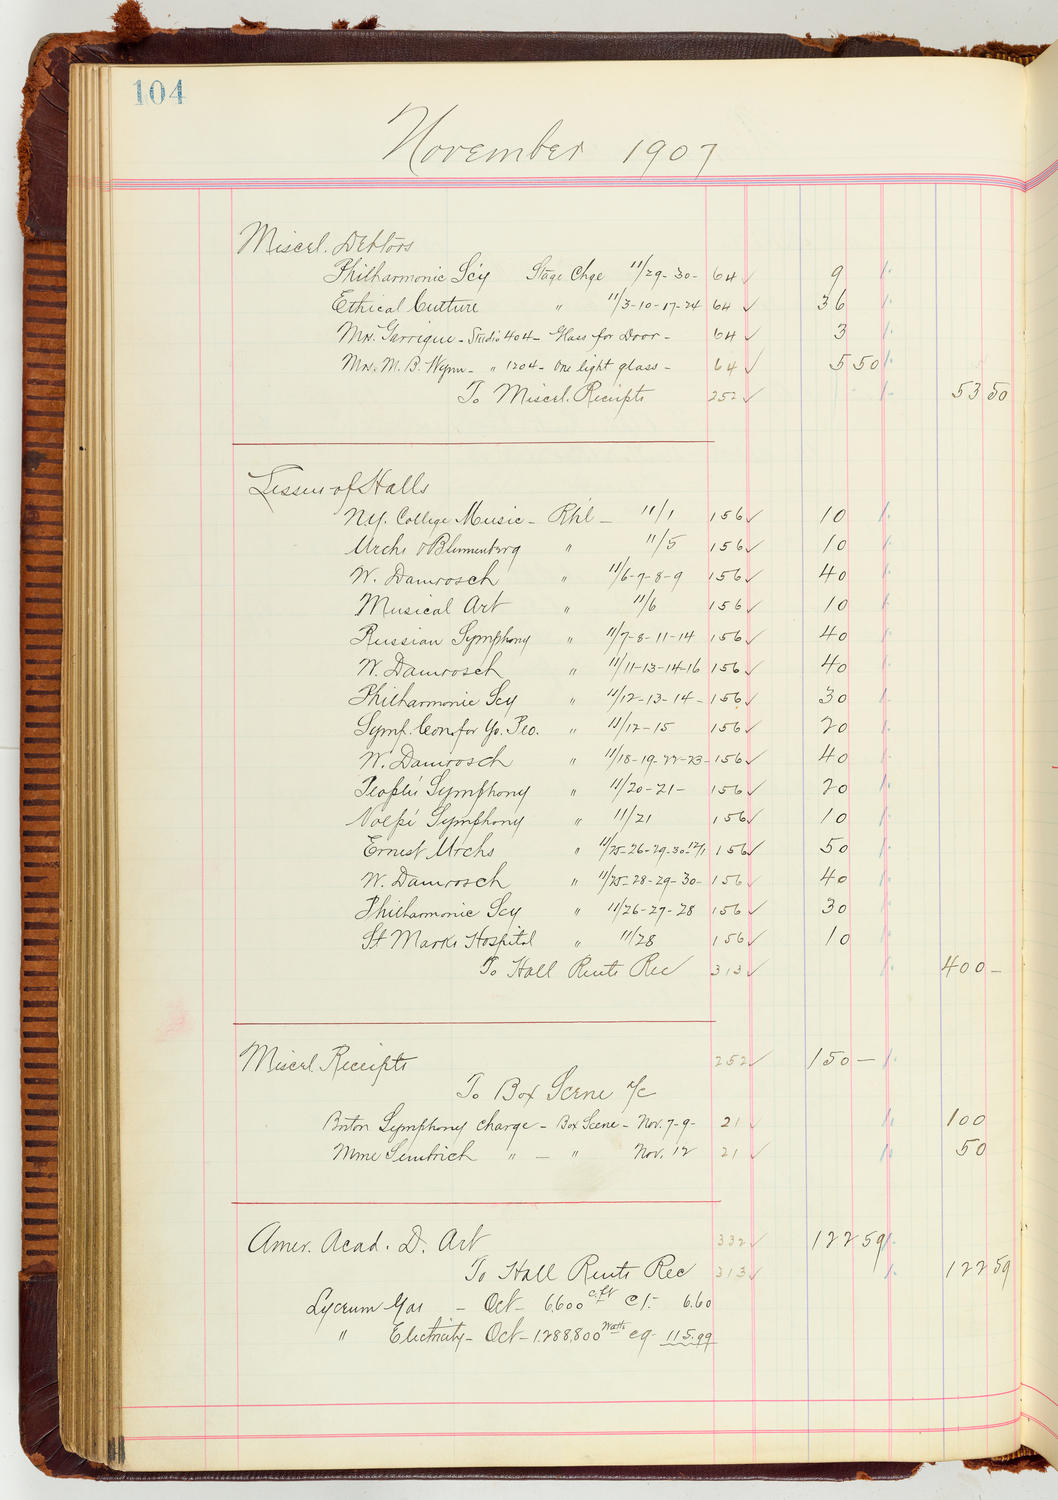 104
November 1907
Miscel. Debtors
Philharmonic Scy Stage Chge 11/29-30- 64 ✓ 9
Ethical Culture " 11/3-10-17-24 64 ✓ 36
Mrs. Garrigue - Studio 404 - Glass for Door - 64 ✓ 3
Mrs. M. B. Wynn - " 1204 - One light glass - 64 ✓ 5 50
To Miscel. Receipts 252 ✓ 53 50
Lessees of Halls
N.Y. College Music - Rhl - 11/1 156 ✓ 10
Urchs & Blumenberg " 11/5 156 ✓ 10
W. Damrosch " 11/6-7-8-9 156 ✓ 40
Musical Art " 11/6 156 ✓ 10
Russian Symphony " 11/7-8-11-14 156 ✓ 40
W. Damrosch " 11/11-13-14-16 156 ✓ 40
Philharmonic Scy " 11/12-13-14- 156 ✓ 30
Symp. Con. for Yo. Peo. " 11/12-15 156 ✓ 20
W. Damrosch " 11/18-19-22-23- 156 ✓ 40
People's Symphony " 11/20-21- 156 ✓ 20
Volpe Symphony " 11/21 156 ✓ 10
Ernest Urchs " 11/25-26-29-30-12/1 156 ✓ 50
W. Damrosch " 11/25-28-29-30- 156 ✓ 40
Philharmonic Scy " 11/26-27-28 156 ✓ 30
St Marks Hospital " 11/28 156 ✓ 10
To Hall Rents Rec 313 ✓ 400-
Miscel. Receipts 252 ✓ 150-
To Box Scene a/c
Boston Symphony charge - Box Scene - Nov. 7-9- 21 ✓ 100
Mme Sembrich " - " Nov. 12 21 ✓ 50
Amer. Acad. D. Art 332 ✓ 122 59
To Hall Rents Rec 313 ✓ 122 59
Lyceum Gas - Oct - 6,600 c.ft @ 1.- 6.60
" Electricity - Oct - 1,288,800 Watts @ 9- 115.99